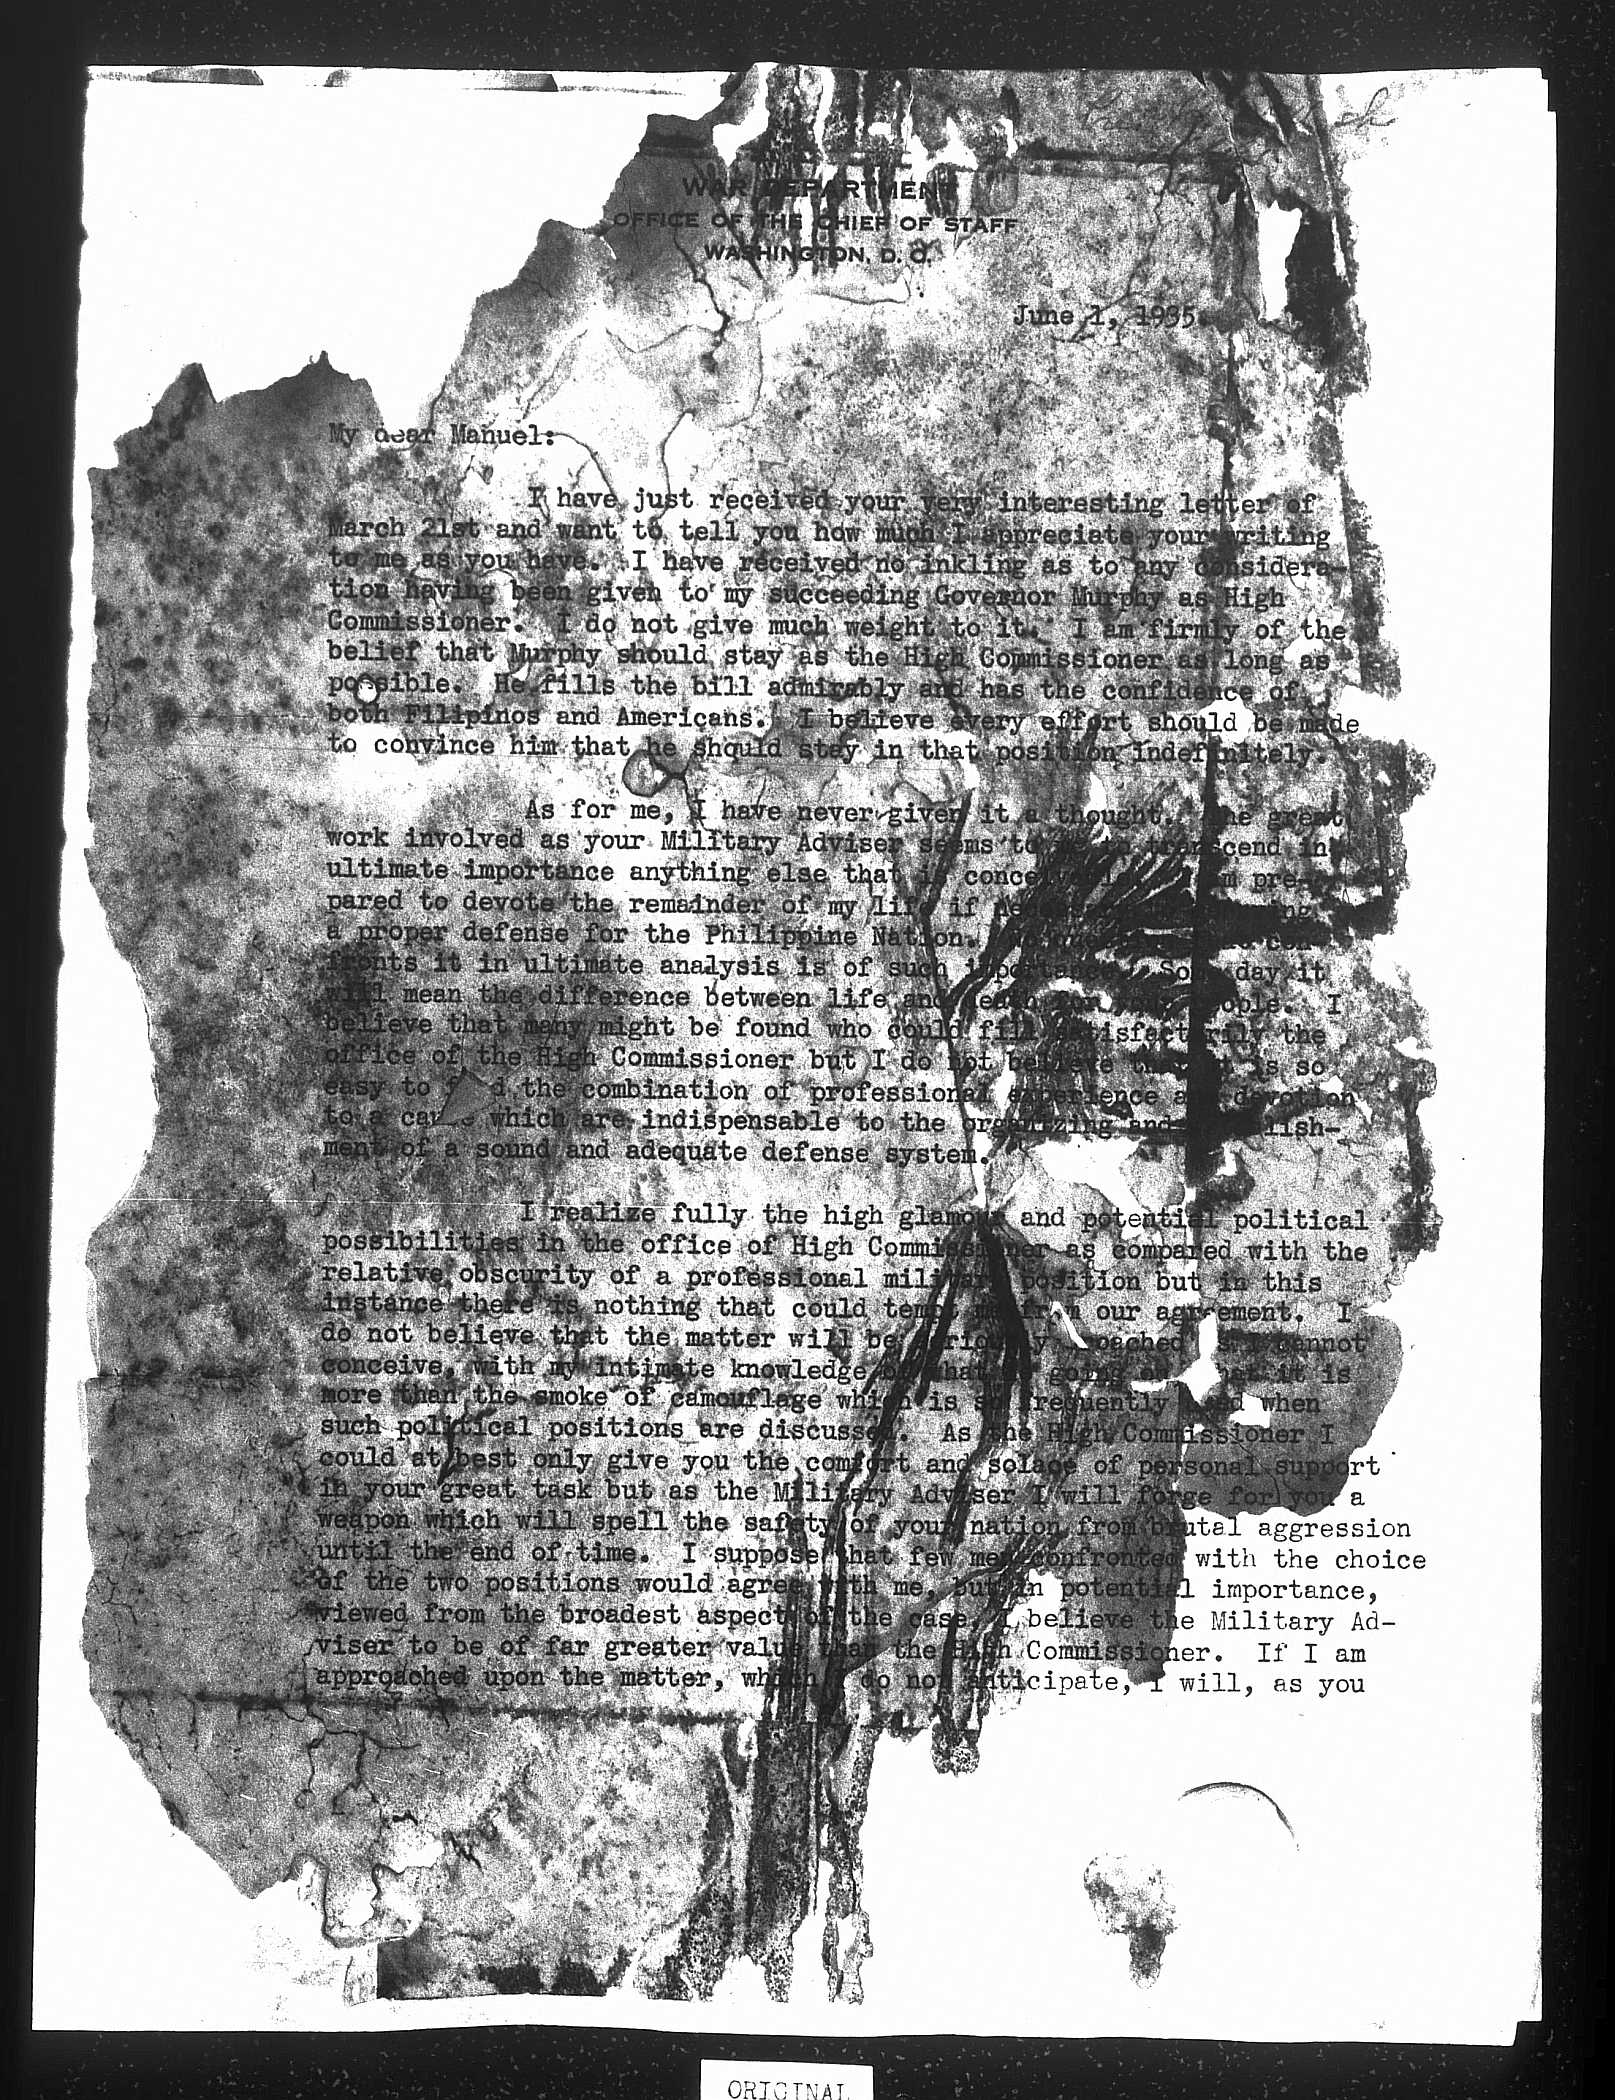 WAR DEPARTMENT
OFFICE OF THE CHIEF OF STAFF
WASHINGTON, D. C.
June 1, 1935.
My dear Manuel:
I have just received your very interesting letter of
March 21st and want to tell you how much I appreciate your writing
to me as you have. I have received no inkling as to any considera-
tion having been given to my succeeding Governor Murphy as High
Commissioner. I do not give much weight to it. I am firmly of the
belief that Murphy should stay as the High Commissioner as long as
possible. He fills the bill admirably and has the confidence of
both Filipinos and Americans. I believe every effort should be made
to convince him that he should stay in that position indefinitely.
As for me, I have never given it a thought. The great
work involved as your Military Adviser seems to me to transcend in
ultimate importance anything else that is pre-
pared to devote the remainder of my life if
a proper defense for the Philippine Nation. con-
fronts it in ultimate analysis is of such importance. Some day it
will mean the difference between life and death for people. I
believe that many might be found who could fill satisfactorily the
office of the High Commissioner but I do not believe that it is so
easy to find the combination of professional experience and devotion
to a cause which are indispensable to the organizing and
ment of a sound and adequate defense system.
I realize fully the high glamour and potential political
possibilities in the office of High Commissioner as compared with the
relative obscurity of a professional military position but in this
instance there is nothing that could tempt me from our agreement. I
do not believe that the matter will be seriously broached as I cannot
conceive, with my intimate knowledge of what is going on, that it is
more than the smoke of camouflage which is so frequently used when
such political positions are discussed. As the High Commissioner I
could at best only give you the comfort and solace of personal support
in your great task but as the Military Adviser I will forge for you a
weapon which will spell the safety of your nation from brutal aggression
until the end of time. I suppose that few men confronted with the choice
of the two positions would agree with me, but in potential importance,
viewed from the broadest aspect of the case, I believe the Military Ad-
viser to be of far greater value than the High Commissioner. If I am
approached upon the matter, which I do not anticipate, I will, as you
ORIGINAL